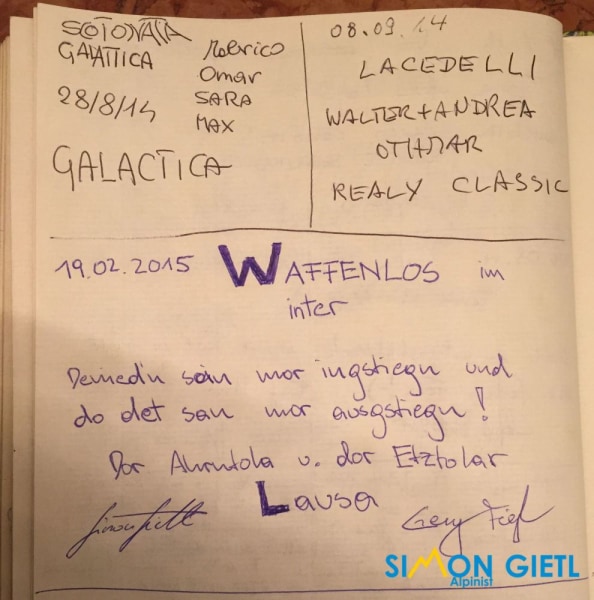 SCOTONATA
GALATTICA
28/8/14
GALACTICA
Omar
SARA
MAX
08.09.14
LACEDELLI
WALTER+ANDREA
OTHMAR
REALY CLASSIC
19.02.2015 WAFFENLOS im
inter
sein mor ingstiegn und
do det san mor ausgstiegn!
Dor Ahrntola u. dor Etztolar
Lausa
SIMON GIETL
Alpinist